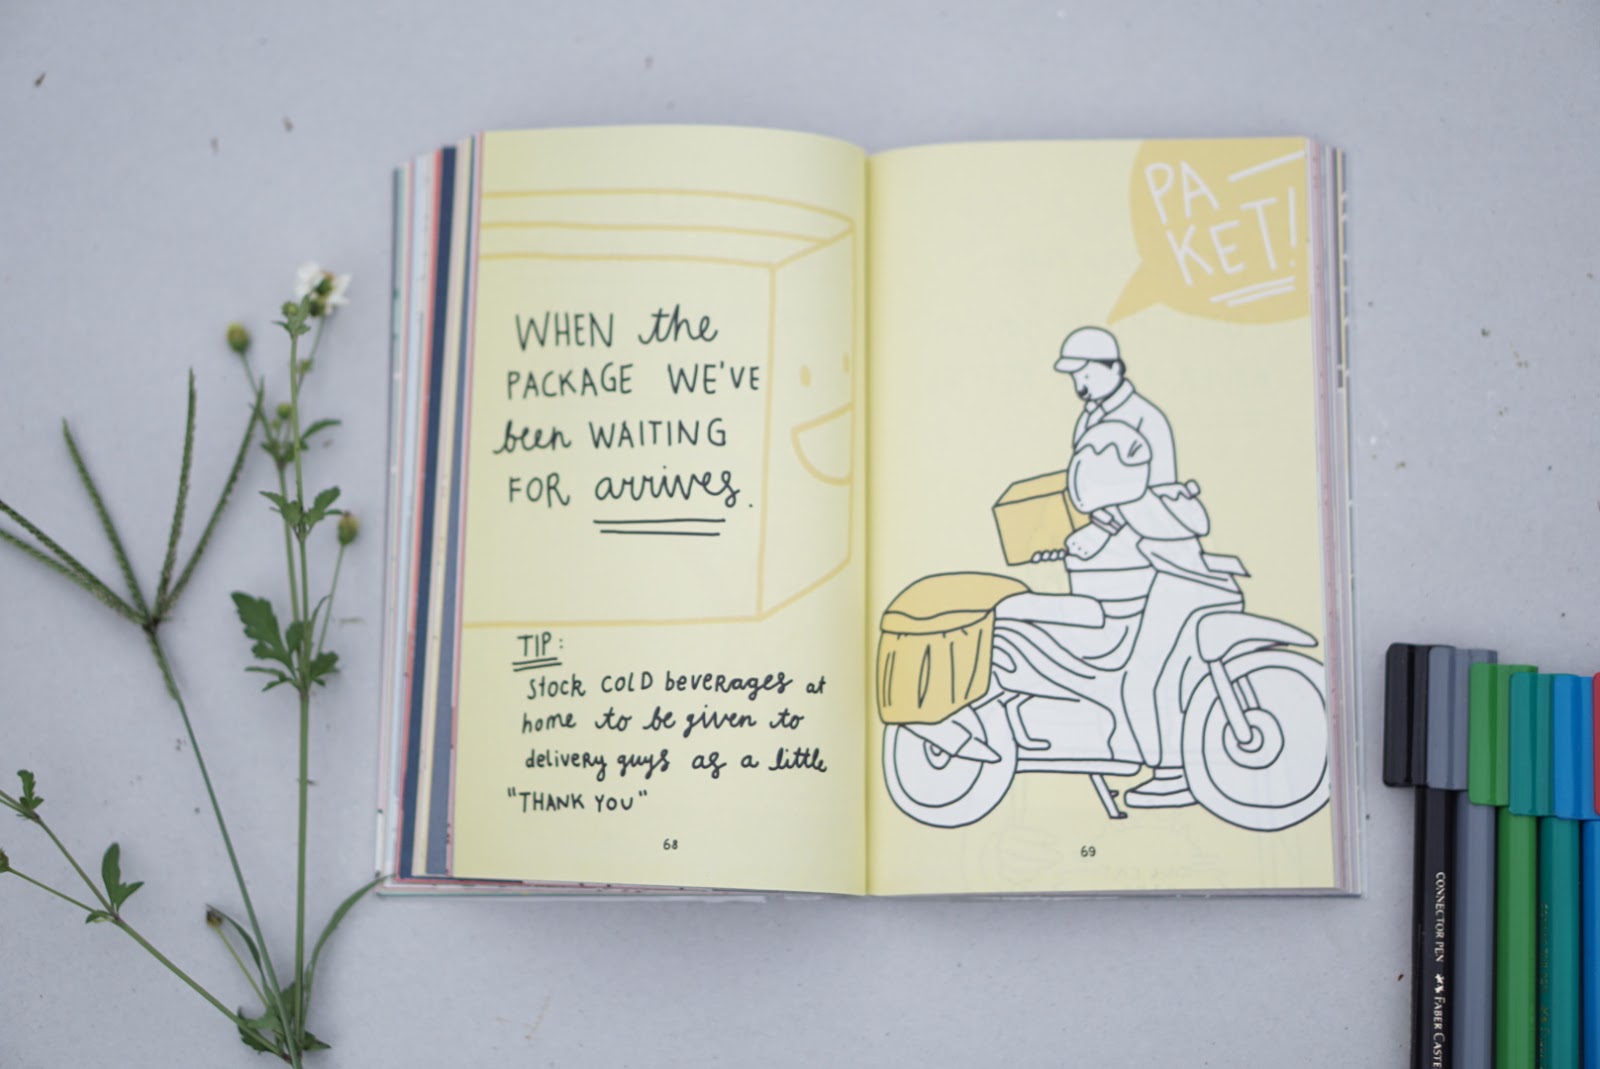 WHEN the
PACKAGE WE'VE
been WAITING
FOR arrives.
TIP:
Stock COLD beverages at
home to be given to
delivery guys as a little
"THANK YOU"
68
PA-
KET!
69
CONNECTOR PEN FABER CASTE